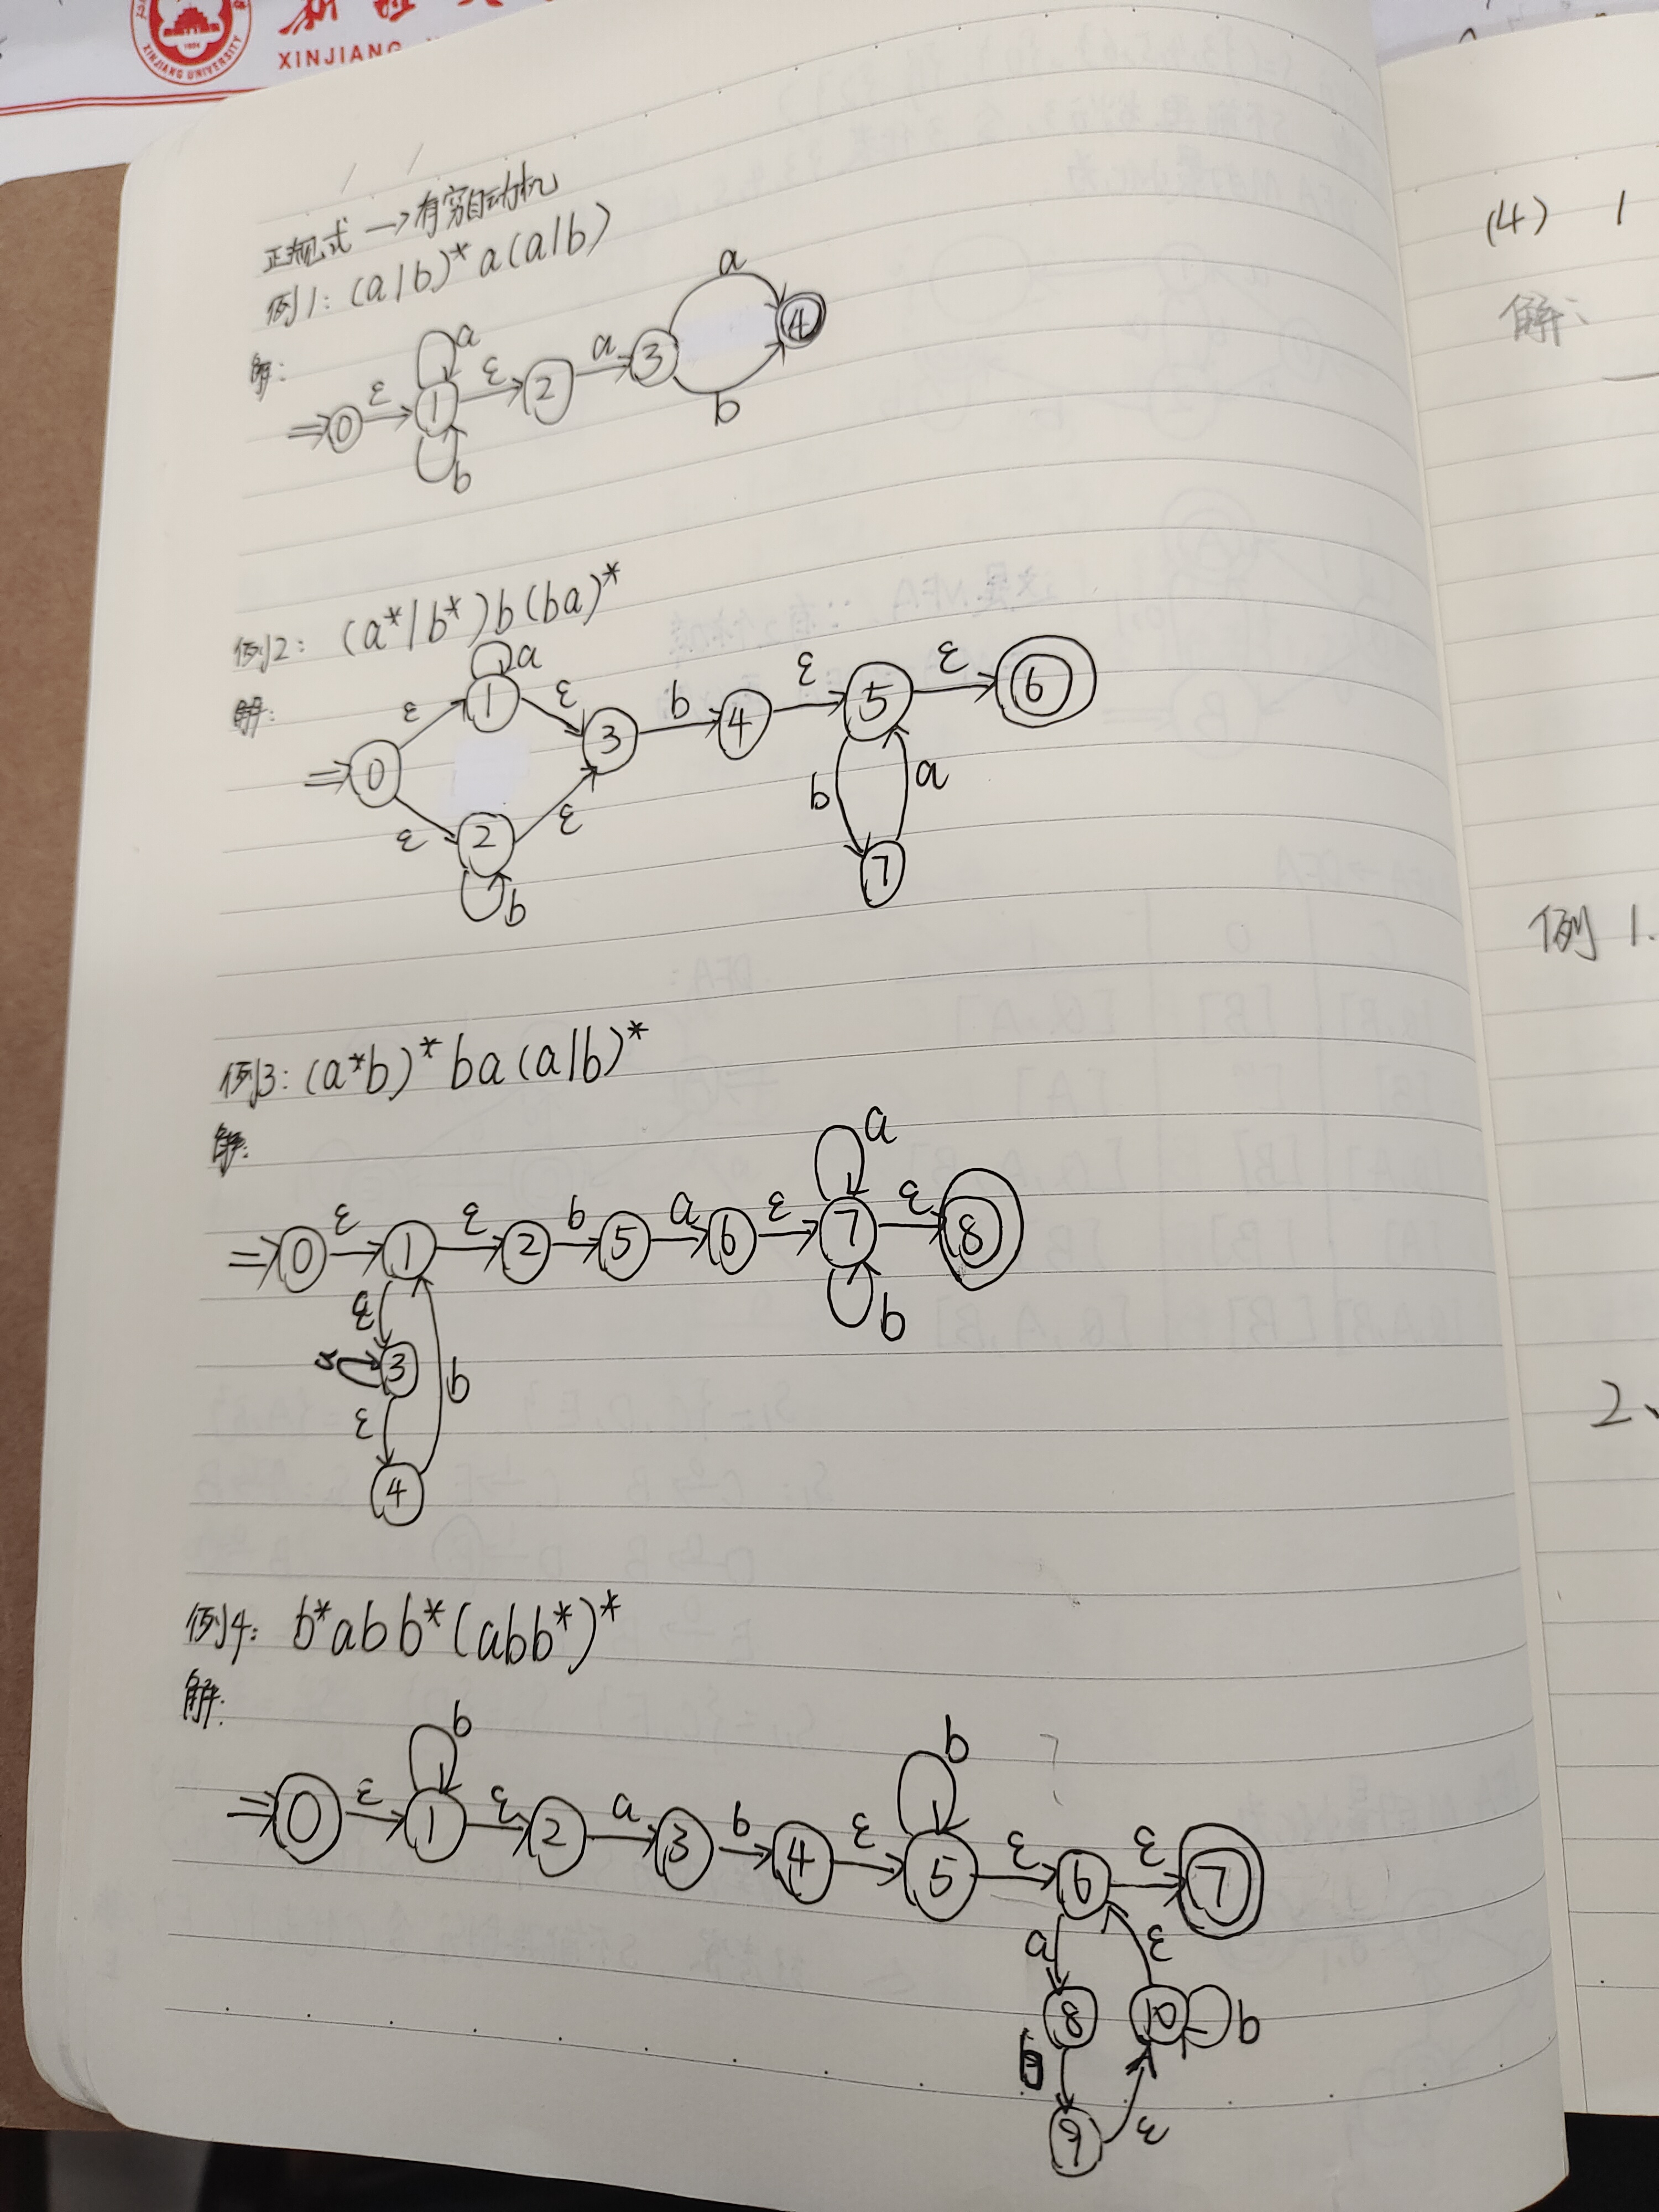 XINJIANG UNIVERSITY
XINJIANG
正规式 → 有穷自动机
例1: (a|b)* a(a|b)
解:
⇒ 0 ε 1 a b ε 2 a 3 a b 4
例2: (a*|b*)b(ba)*
解:
⇒ 0 ε 1 a ε 3 b 4 ε 5 ε 6
ε 2 b ε b a 7
例3: (a*b)* ba(a|b)*
解:
⇒ 0 ε 1 ε 2 b 5 a 6 ε 7 a b ε 8
ε 3 ε 4 b
例4: b*abb*(abb*)*
解:
⇒ 0 ε 1 b ε 2 a 3 b 4 ε 5 b ε 6 ε 7
a 8 b 9 ε 10 b ε
(4) 1
解:
例1.
2、